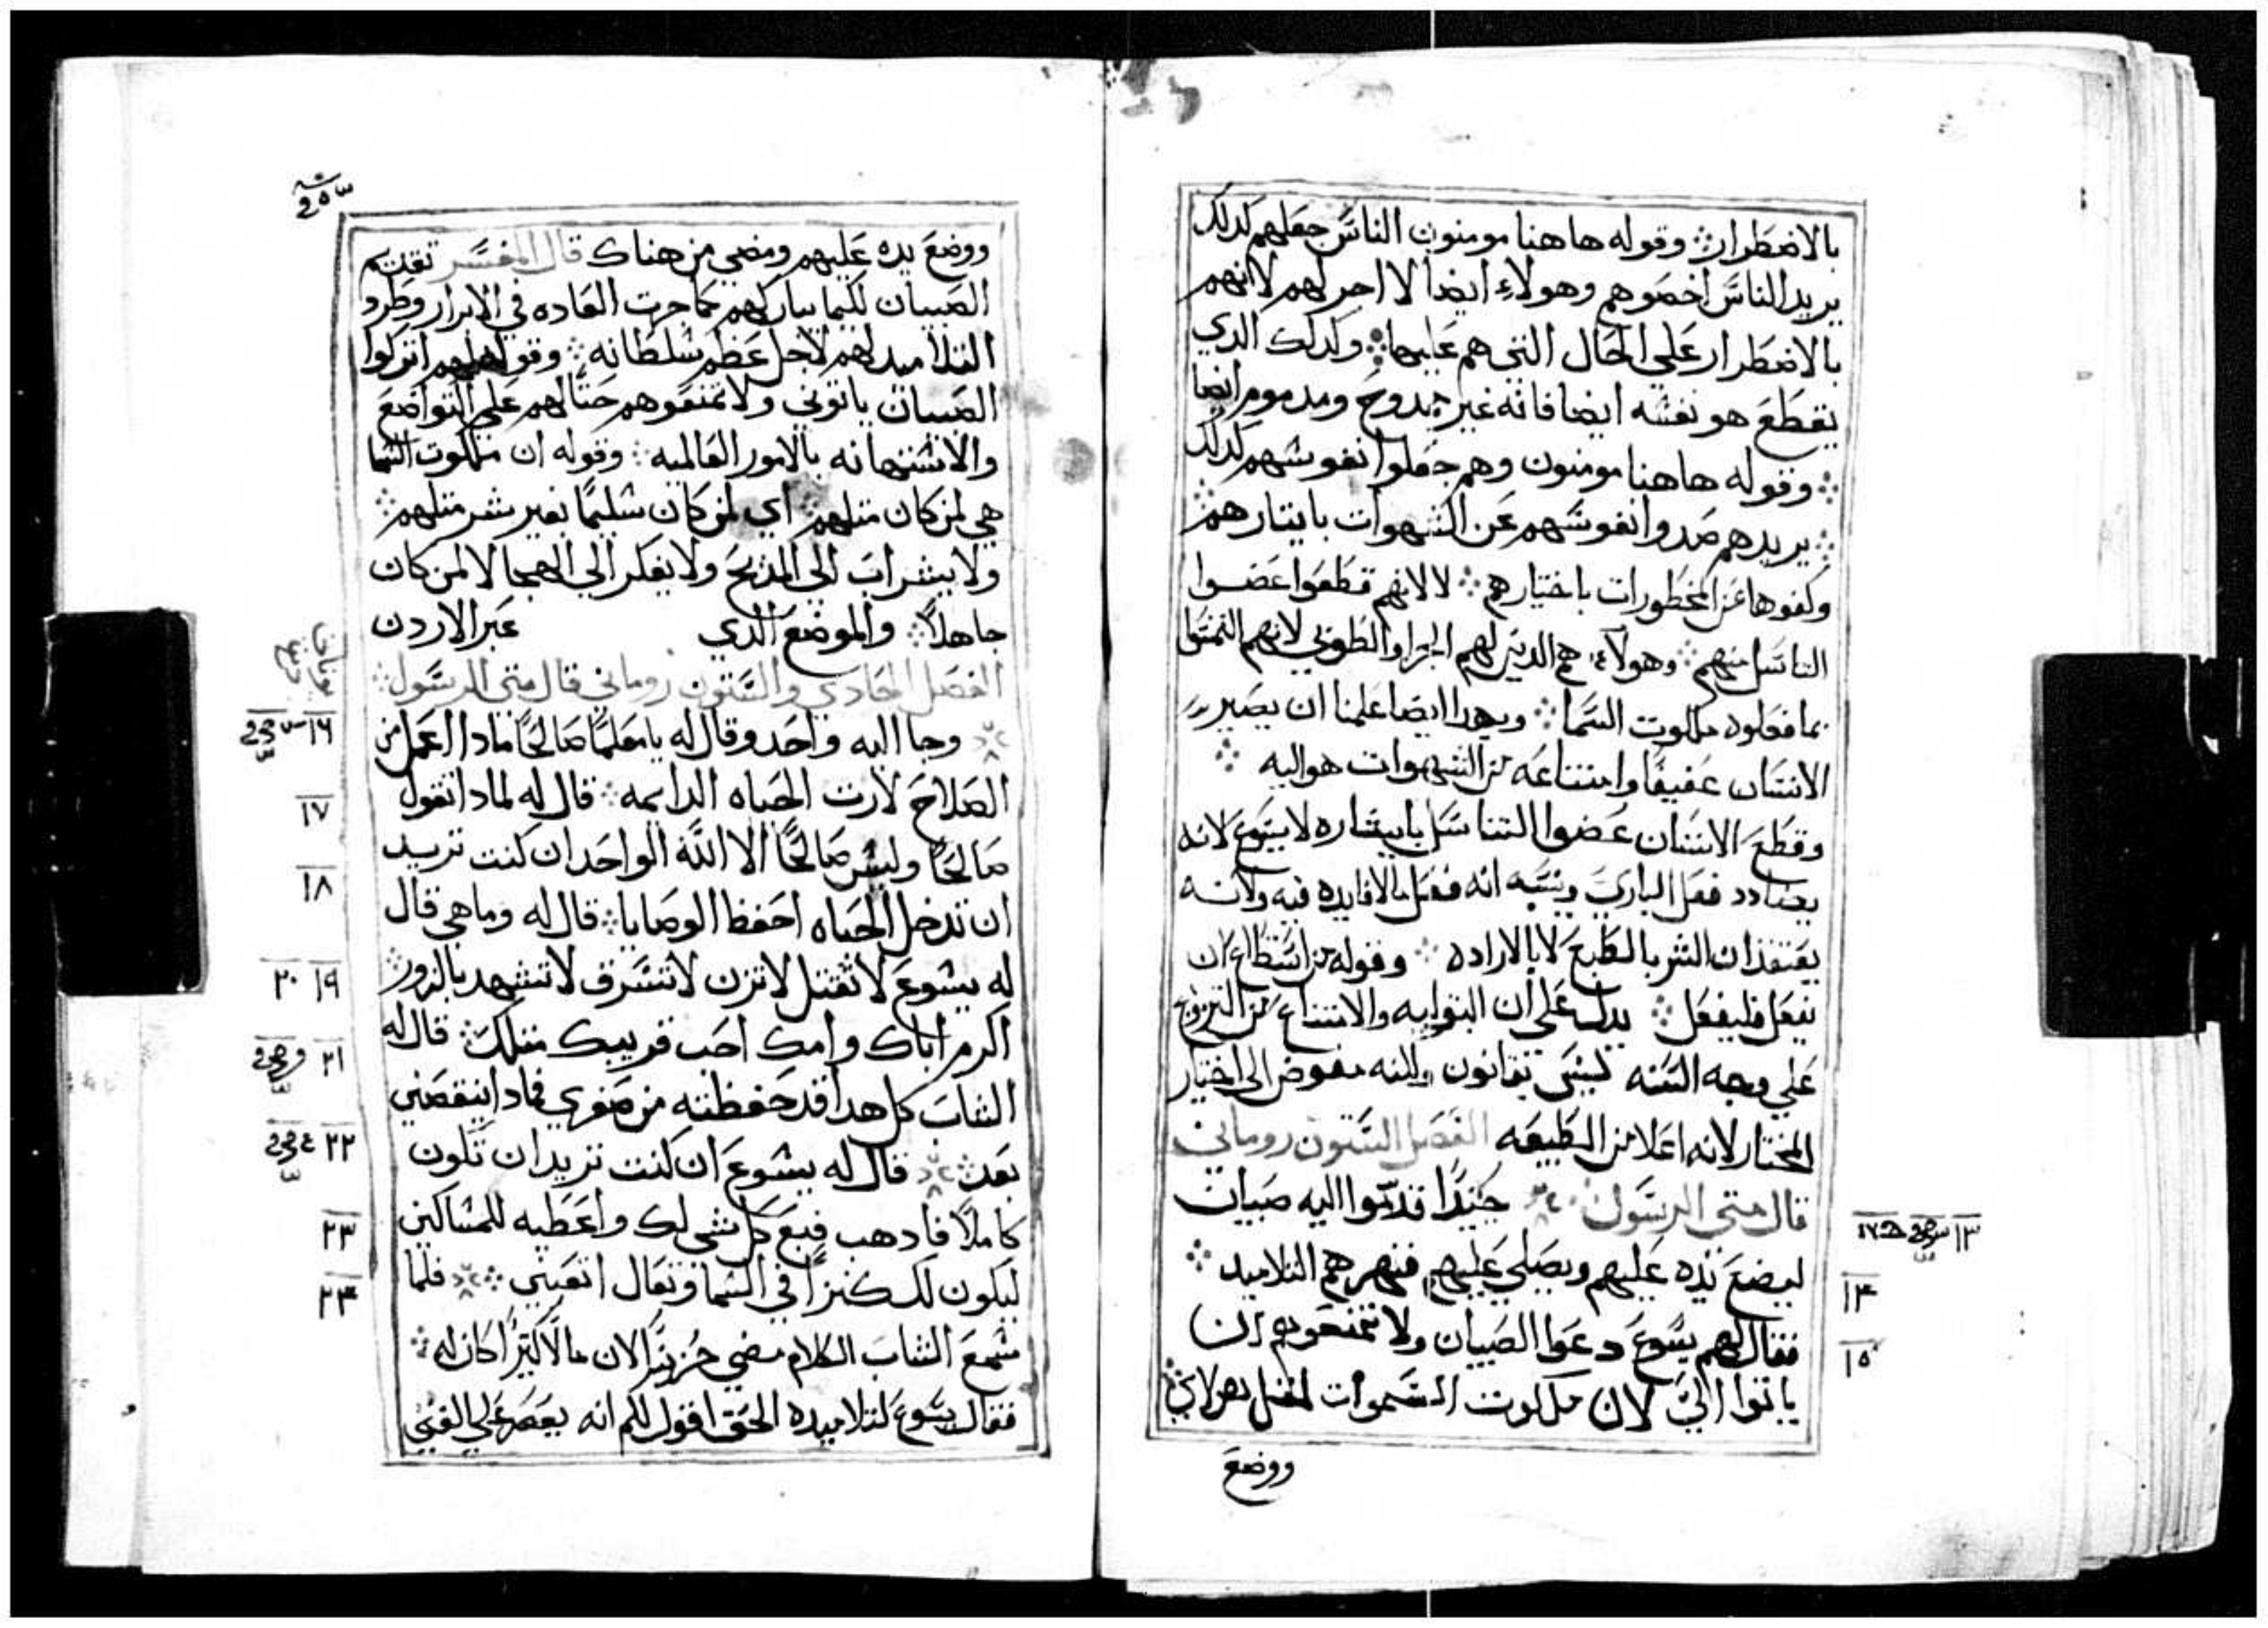 بالاضطرار ؞ وقوله هاهنا مومنون الناس جعلهم لدلك
يريد الناس اخصوهم وهولاء ايضا لا اجر لهم لانهم
بالاضطرار علي الحال التي هم عليها ؞ وكدلك الدي
يقطع هو نفسه ايضا فانه غير ممدوح ومدموم ايضا
؞ وقوله هاهنا مومنون وهم جعلوا نفوسهم لدلك
؞ يريد هم صدوا نفوسهم عن الشهوات بايتارهم
وكفوها عن المحظورات باختيارهم ؞ لا لانهم قطعوا عضوا
التناسل منهم ؞ وهولاء هم الدين لهم الجزا والطوبي لانهم
بما فعلوه ملكوت السما ؞ وبهدا ايضا علمنا ان يصير
الانسان عفيفا وامتناعه من الشهوات هو اليه ؞
وقطع الانسان عضوا التناسل بايتاره لا يسوع لانه
يضادد فعل الباري وينسبه انه فعل ما لا فايده فيه ولانه
يعتقد ان الشر بالطبع لا بالارادة ؞ وقوله من استطاع ان
يفعل فليفعل ؞ يدل علي ان البتوليه والامتناع من التزويج
علي وجه السنه ليس بقانون ولكنه مفوض الي اختيار
المختار لانه اعلا من الطبيعه الفصل الستون روماني
قال متي الرسول ؞ حينيدا قدموا اليه صبيان
ليضع يده عليهم ويصلي عليهم فنهرهم التلاميد ؞
فقال لهم يسوع دعوا الصبيان ولا تمنعوهم ان
ياتوا الي لان ملكوت السموات لمثل هولاي ؞
ووضع
١٣
١٤
١٥
ووضع يده عليهم ومضي من هناك قال المفسر تقديم
الصبيان لكيما يباركهم كما جرت العاده في الابرار وطرد
التلاميد لهم لاجل عظم سلطانه ؞ وقوله لهم اتركوا
الصبيان ياتوني ولا تمنعوهم حتا لهم علي التواضع
والاستهانه بالامور العالميه ؞ وقوله ان ملكوت السما
هي لمن كان متلهم ؞ اي لمن كان سليما بغير شر متلهم ؞
ولا يشراب الي المديح ولا يفكر الي الهجا لا لمن كان
جاهلا ؞ والموضع الدي عبر الاردن
الفصل الحادي والستون روماني قال متي الرسول ؞
وجا اليه واحد وقال له يا معلما صالحا مادا اعمل من
الصلاح لارت الحياه الدايمه ؞ قال له لمادا تقول
صالحا وليس صالحا الا الله الواحد ان كنت تريد
ان تدخل الحياه احفظ الوصايا ؞ قال له وما هي قال
له يسوع لا تقتل لا تزن لا تسرق لا تشهد بالزور ؞
اكرم اباك وامك احب قريبك متلك ؞ قال له
الشاب كل هدا قد حفظته من صغري فمادا ينقصني
بعد ؞ قال له يسوع ان كنت تريد ان تكون
كاملا فادهب فبع كل شي لك واعطيه للمساكين
ليكون لك كنزا في السما وتعال اتبعني ؞ فلما
سمع الشاب الكلام مضي حزينا لان مالا كتيرا كان له ؞
فقال يسوع لتلاميده الحق اقول لكم انه يعسر علي الغني
١٦
١٧
١٨
١٩ ٢٠
٢١
٢٢
٢٣
٢٤